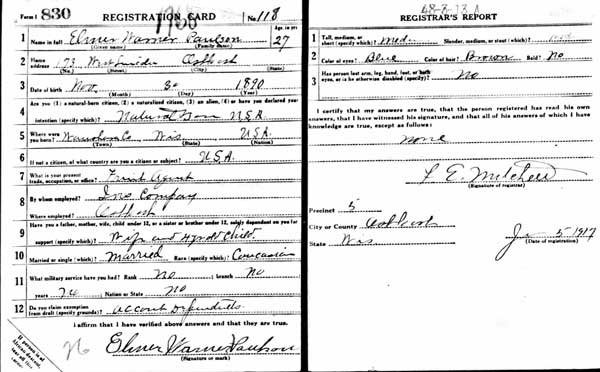 Form 1 830 REGISTRATION CARD No. 118
1 Name in full Elmer Warner Paulson Age, in yrs. 27
(Given name) (Family name)
2 Home address 173 West Oshkosh Wis
(No.) (Street) (City) (State)
3 Date of birth Nov. 30 1890
(Month) (Day) (Year)
4 Are you (1) a natural-born citizen, (2) a naturalized citizen, (3) an alien, (4) or have you declared your
intention (specify which)? Natural Born U.S.A.
5 Where were you born? Waushara Co Wis U.S.A.
(Town) (State) (Nation)
6 If not a citizen, of what country are you a citizen or subject? U.S.A.
7 What is your present trade, occupation, or office? Agent
8 By whom employed? Ins Company
Where employed? Oshkosh
9 Have you a father, mother, wife, child under 12, or a sister or brother under 12, solely dependent on you for
support (specify which)? Wife and Child
10 Married or single (which)? Married Race (specify which)? Caucasian
11 What military service have you had? Rank No ; branch No
years No ; Nation or State No
12 Do you claim exemption from draft (specify grounds)? account Dependents
I affirm that I have verified above answers and that they are true.
No Elmer Warner Paulson
(Signature or mark)
48-7-13 A
REGISTRAR'S REPORT
1 Tall, medium, or short (specify which)? Med Slender, medium, or stout (which)? Med
2 Color of eyes? Blue Color of hair? Brown Bald? No
3 Has person lost arm, leg, hand, foot, or both eyes, or is he otherwise disabled (specify)? No
I certify that my answers are true, that the person registered has read his own
answers, that I have witnessed his signature, and that all of his answers of which I have
knowledge are true, except as follows:
none
L E. Mitchell
(Signature of registrar)
Precinct 5
City or County Oshkosh
State Wis
June 5 1917
(Date of registration)